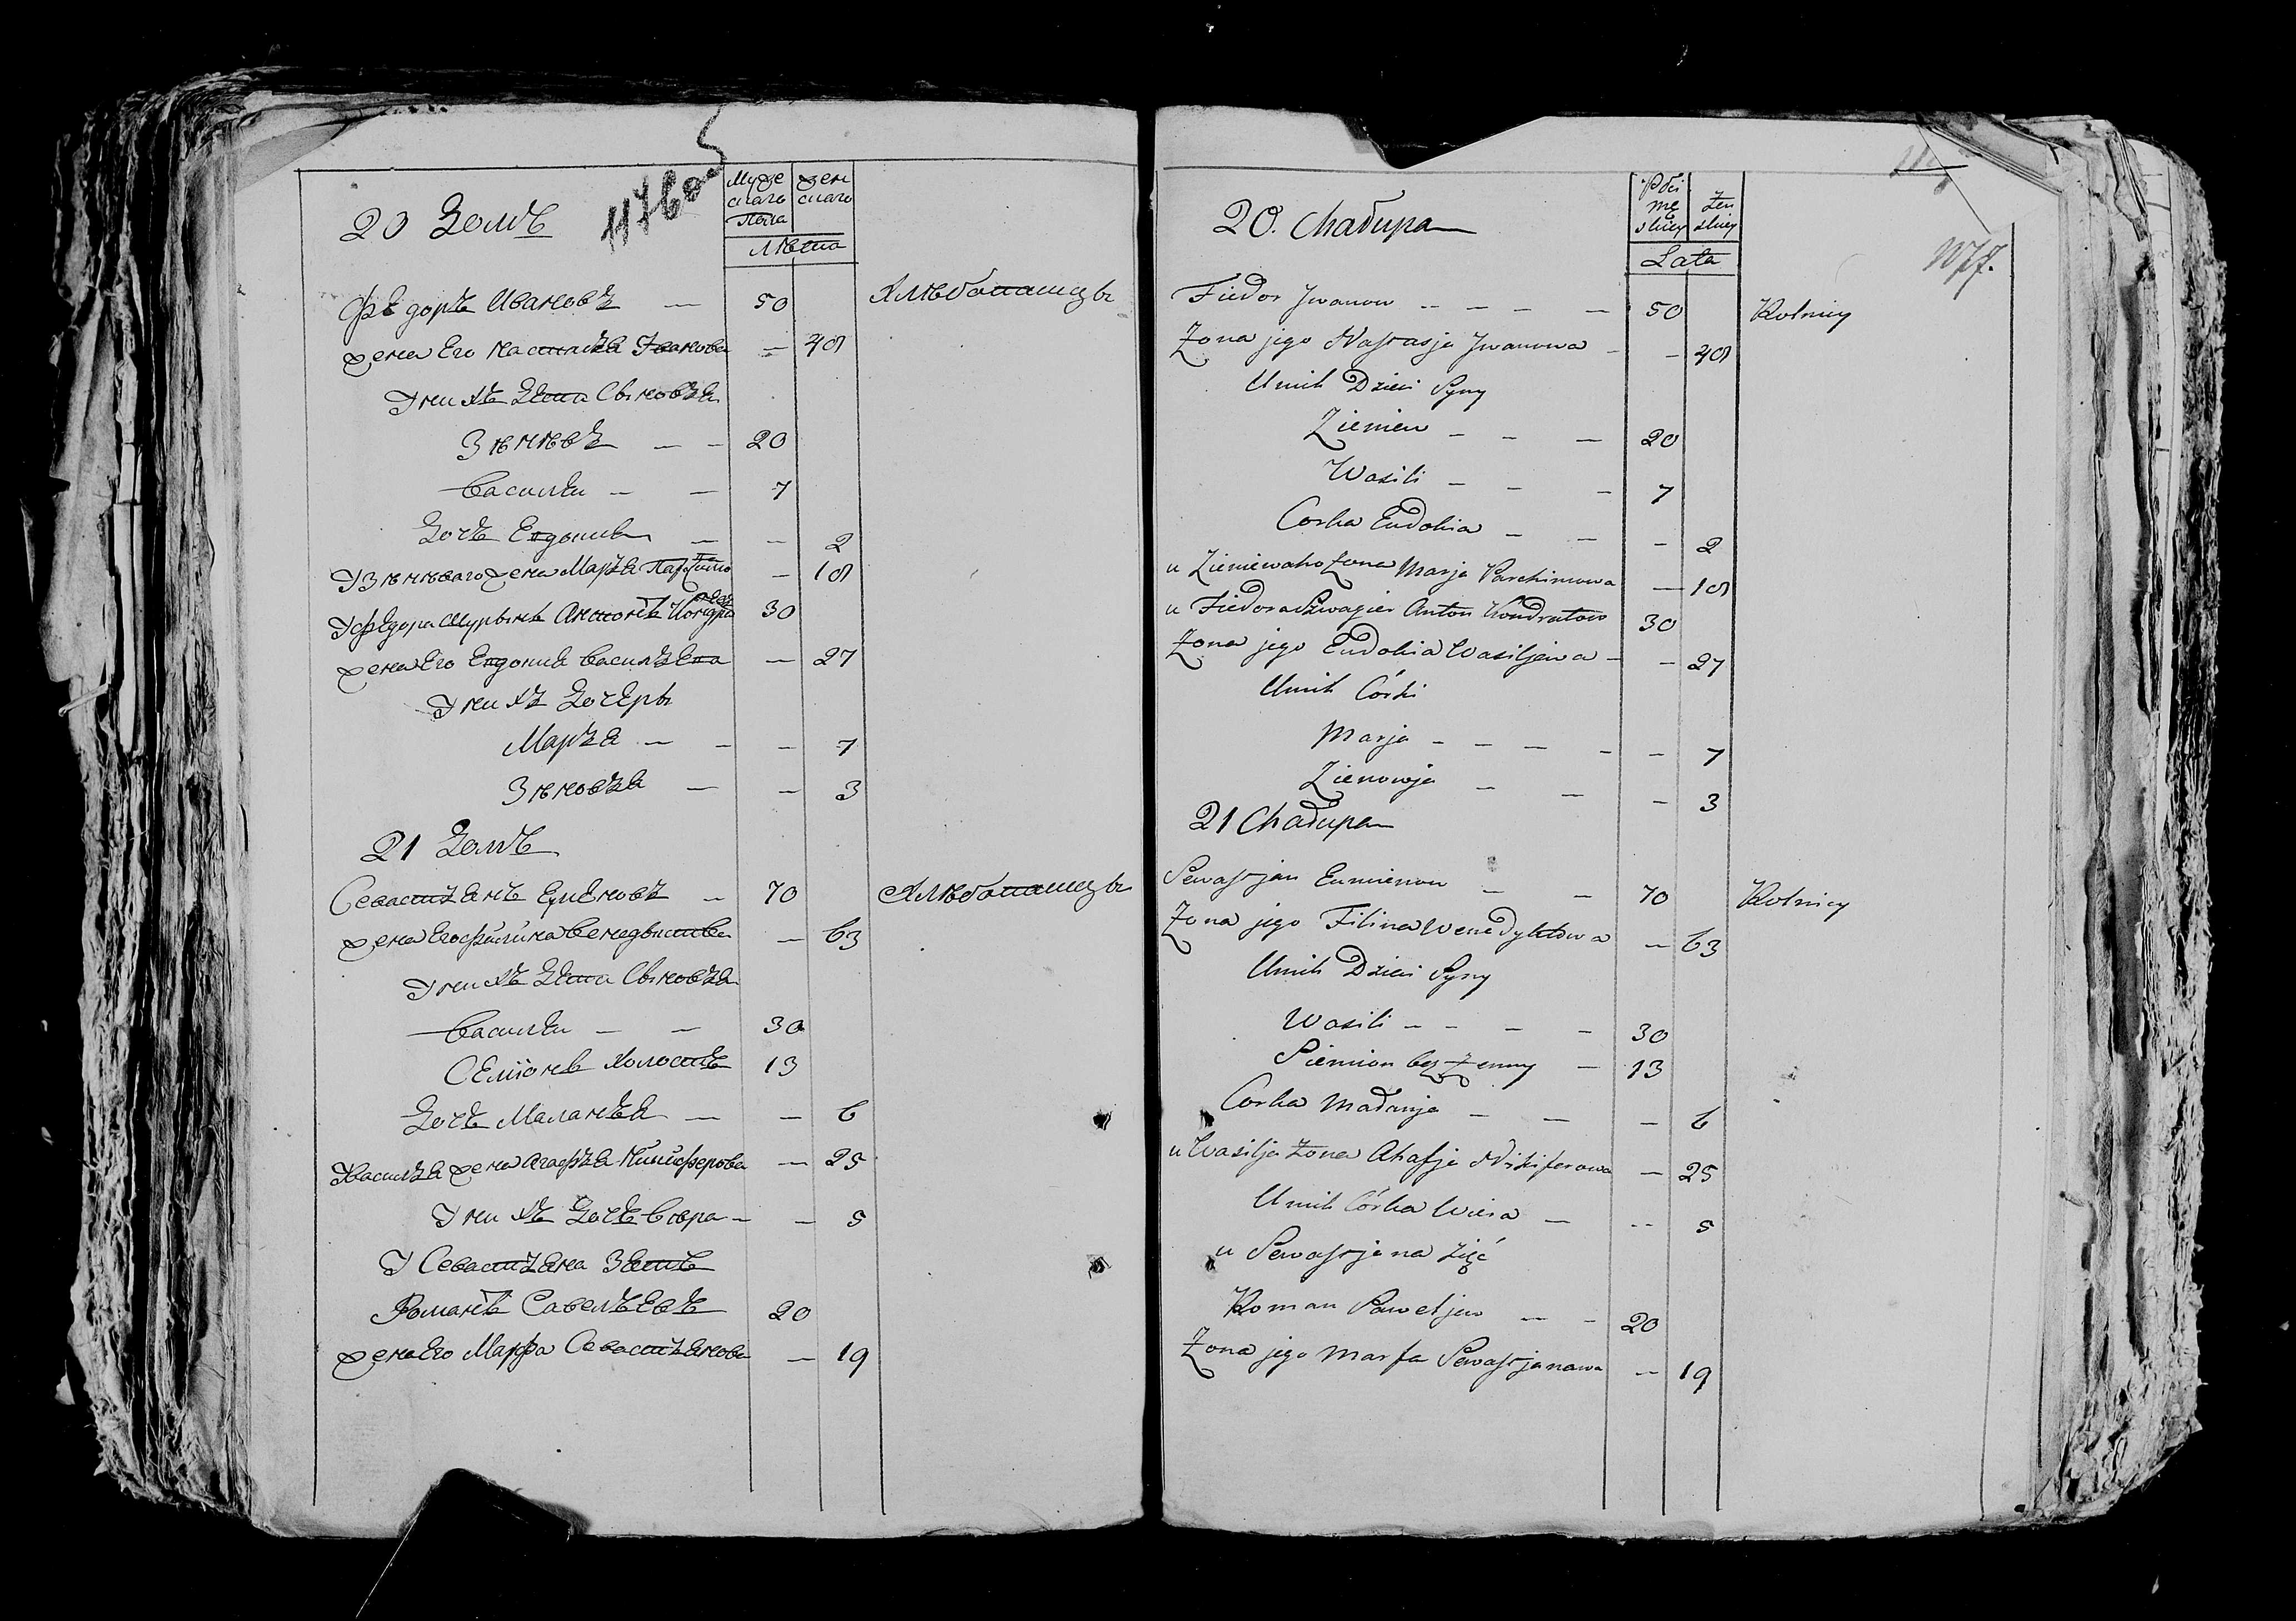 20 Домъ
1176об
Муже
скаго
Пола
Жен
скаго
Лѣта
Фѣдоръ Ивановъ — 50 Хлѣбопашецъ
Жена Его Настасья Іванова — 40
У нихъ Дѣти Сыновья
Зѣнѣвъ — — 20
Василѣи — — 7
Дочь Евдокия — — 2
У Зѣнѣваго жена Марья Пархимо — 18
У Фѣдора Шурынъ Антонъ Кондра 30
Жена Его Евдокия Васильева — 27
У нихъ Дочеры
Марья — — — 7
Зѣновья — — 3
21 Домъ
Севастьянъ Еуменовъ — 70 Хлѣбопашецъ
Жена Его Филина Венедыктва — 63
У нихъ Дѣти Сыновья
Василѣи — — 30
Семіонъ Холостъ 13
Дочь Маланья — — 6
У Василья жена Агафья Никиферова — 25
У нихъ Дочь Вѣра — — 5
У Севастьяна Зять
Романъ Савельевъ 20
Жена Его Марфа Севастьянова — 19
20. Chałupa
Płci
mę
skiey
Żeń
skiey
Lata
1177.
Fiedor Jwanow — — — — 50 Rolnicy
Żona jego Nastasja Jwanowa — — 40
U nich Dzieci Syny
Zieniew — — — 20
Wasili — — — 7
Corka Eudokia — — — 2
u Zieniewaho Żona Marja Parchimowa — 18
u Fiedora Szwagier Anton Kondratow 30
Żona jego Eudokia Wasiljewa — — 27
U nich Córki
Marja — — — — — 7
Zienowja — — — 3
21 Chałupa
Sewastjan Eumienow — — 70 Rolnicy
Żona jego Filina Wenedyktowa — 63
U nich Dzieci Syny
Wasili — — — — 30
Siemion bez Żenny — 13
Corka Małanja — — — 6
u Wasilja Żona Ahafja Nikiferowa — 25
U nich Córka Wiera — — 5
u Sewastjana zięć
Roman Saweljew — — 20
Żona jego Marfa Sewastjanawa — 19